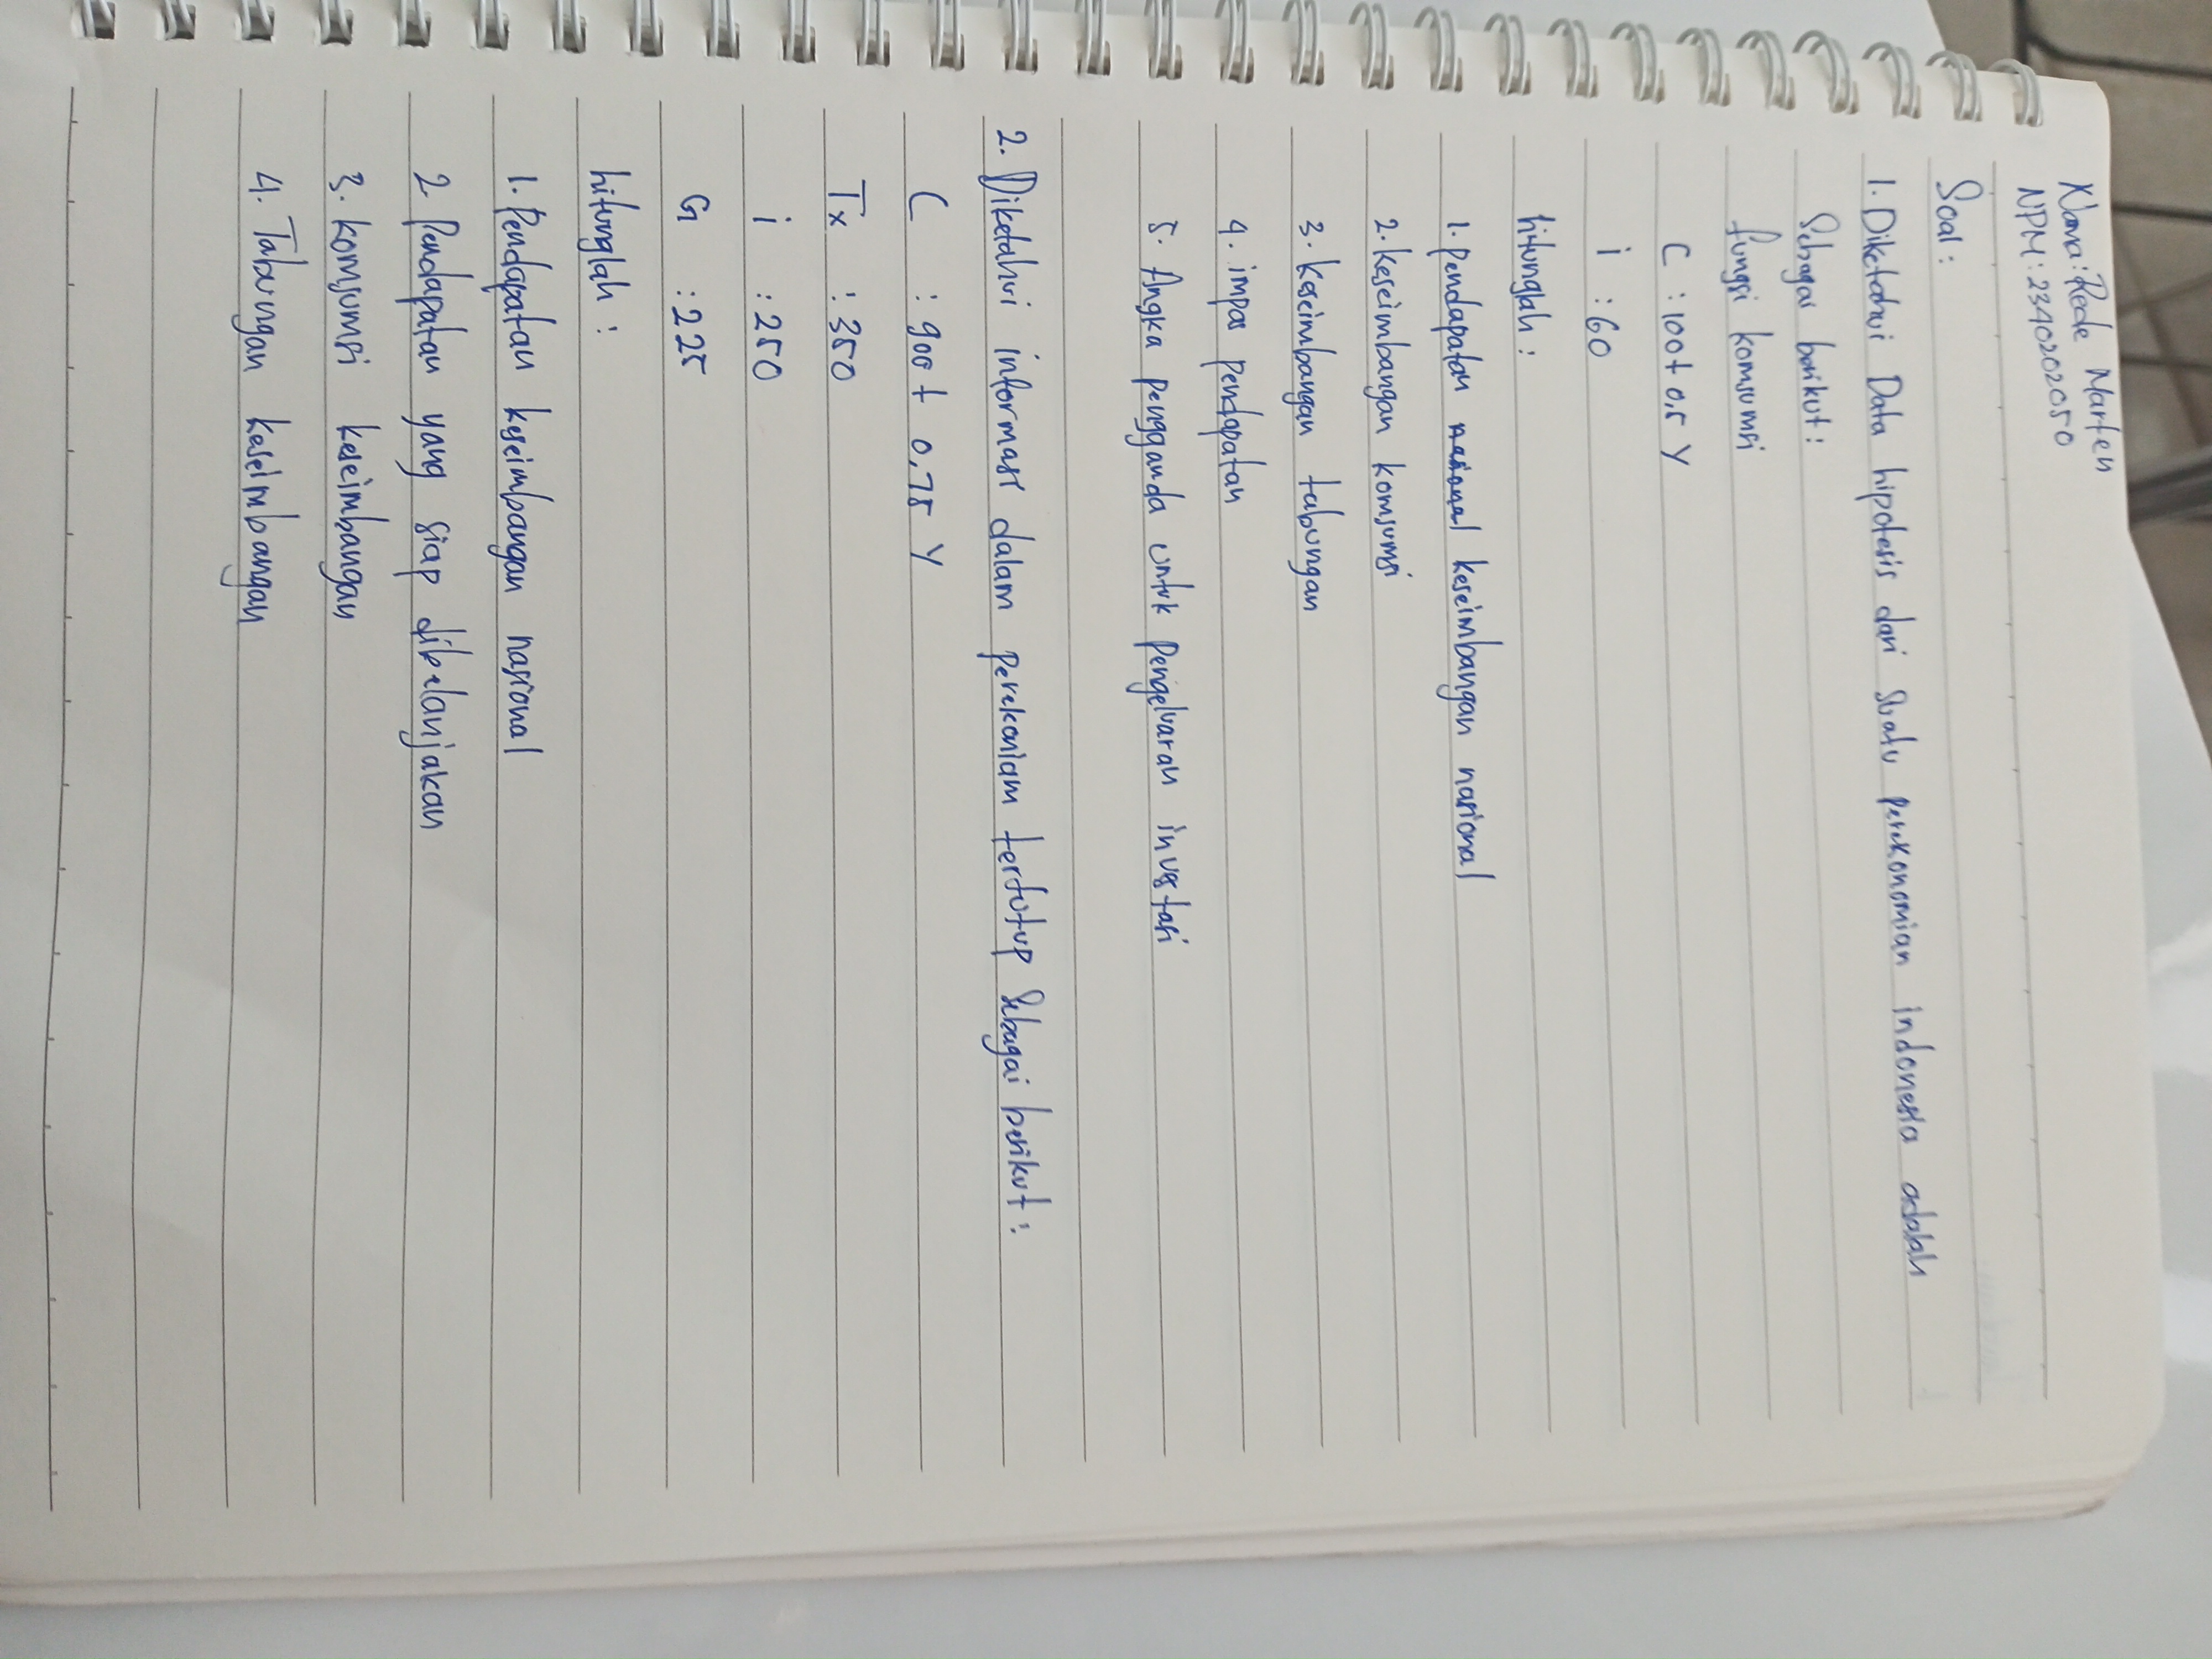 Nama: Rede Marten
NPM: 2340202050
Soal:
1. Diketahui Data hipotesis dari Suatu perekonomian indonesia adalah
Sebagai berikut:
fungsi komsumsi
C : 100 + 0,5 Y
i : 60
hitunglah:
1. Pendapatan nasional keseimbangan nasional
2. keseimbangan komsumsi
3. keseimbangan tabungan
4. impas pendapatan
5. Angka pengganda untuk pengeluaran invgtasi
2. Diketahui informasi dalam perekoniam tertutup Sebagai berikut:
C : 900 + 0,75 Y
Tx : 350
i : 250
G : 225
hitunglah:
1. Pendapatan keseimbangan nasional
2. Pendapatan yang siap dibelanjakan
3. komsumsi keseimbangan
4. Tabungan keseimbangan